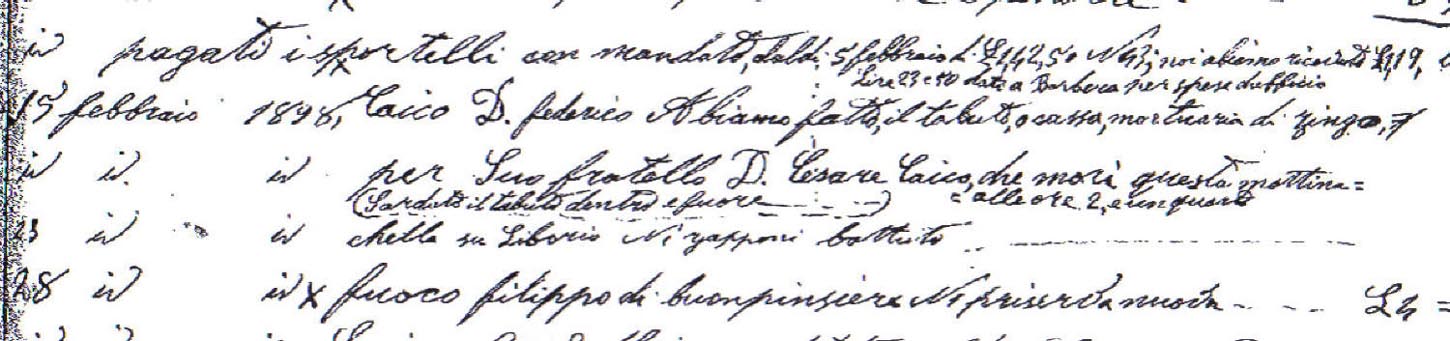 id pagati i sportelli con mandato, dal dì 5 febbraio di £142,50 N 43; noi abiamo ricevuti £119,
Lire 23 e 50 dato a Barbera per spese d'ufficio
15 febbraio 1898, Caico D. federico Abiamo fatto, il tabuto, o cassa, mortuaria di zingo,
id id. id per Suo fratello D. Cesare Caico, che morì questa mattina =
(Sardato il tabuto dentro e fuore ——) = alle ore 2, e un quarto
23 id id chella su Liborio Ni zapponi battuto
28 id id x fuoco filippo di buonpinsiere Ni priserva nuova - - - £4 =